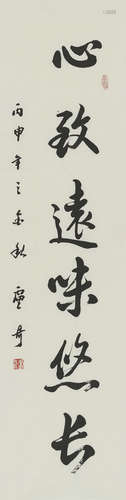 心致遠味悠长
丙申年之金秋